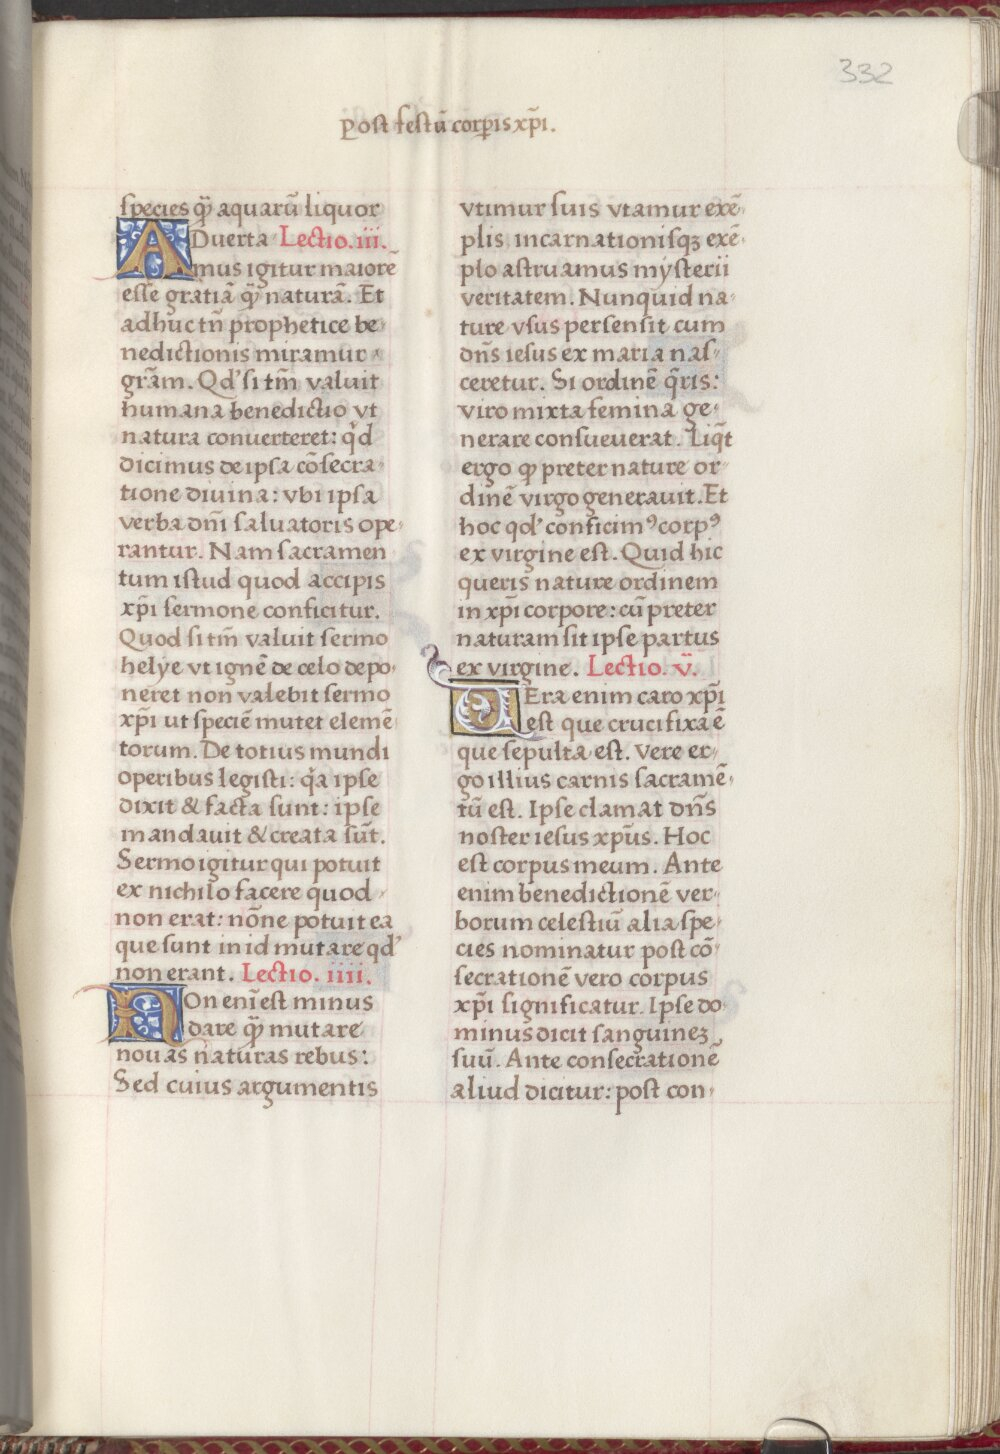 332
Post festū corꝑis xp̄i.
species qꝫ̄ aquarū liquor
ADuerta Lectio.iii.
mus igitur maiorē
esse gratiā qꝫ̄ naturā. Et
adhuc tn̄ prophetice be
nedictionis miramur
grām. Qd' si tm̄ valuit
humana benedictio vt
natura conuerteret: qi̇d
dicimus de ipsa cōsecra
tione diuina: vbi ipsa
verba dn̄i saluatoris ope
rantur. Nam sacramen
tum istud quod accipis
xp̄i sermone conficitur.
Quod si tm̄ valuit sermo
helye vt ignē de celo depo
neret non valebit sermo
xp̄i ut speciē mutet elemē
torum. De totius mundi
operibus legisti: qa̓ ipse
dixit & facta sunt: ipse
mandauit & creata sūt.
Sermo igitur qui potuit
ex nichilo facere quod
non erat: nōne potuit ea
que sunt in id mutare qd'
non erant. Lectio. iiii.
NOn eni̅ est minus
dare qꝫ̄ mutare
nouas naturas rebus:
Sed cuius argumentis
vtimur suis vtamur exē
plis, incarnationisqꝫ exē
plo astruamus mysterii
veritatem. Nunquid na
ture vsus persensit cum
dn̄s iesus ex maria nas
ceretur. Si ordinē q̄ris:
viro mixta femina ge
nerare consueuerat. Liq̄t
ergo ꝙ preter nature or
dinē virgo generauit. Et
hoc qd' conficimꝰ corpꝰ
ex virgine est. Quid hic
queris nature ordinem
in xp̄i corpore: cū preter
naturam sit ipse partus
ex virgine. Lectio. v.
VEra enim caro xp̄i
est que crucifixa ē
que sepulta est. vere er
go illius carnis sacramē
tū est. Ipse clamat dn̄s
noster iesus xp̄us. Hoc
est corpus meum. Ante
enim benedictionē ver
borum celestiū alia spe
cies nominatur post cō
secrationē vero corpus
xp̄i significatur. Ipse do
minus dicit sanguineꝫ
suū. Ante consecrationē
aliud dicitur: post con